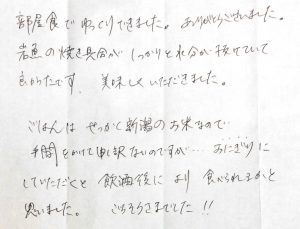 部屋食でゆっくりできました。ありがとうございました。
岩魚の焼き具合がしっかりと水分が抜けていて
良かったです。美味しくいただきました。
ごはんはせっかく新潟のお米なので
手間をかけて申し訳ないのですが…おにぎりに
していただくと飲酒後により食べられるかと
思いました。ごちそうさまでした!!